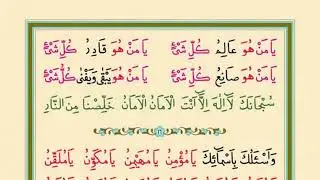 يَا مَنْ هُوَ عَالِمُ كُلِّ شَىْءٍ يَا مَنْ هُوَ قَادِرُ كُلِّ شَىْءٍ
يَا مَنْ هُوَ صَانِعُ كُلِّ شَىْءٍ يَا مَنْ هُوَ يَبْقٰى وَيَفْنٰى كُلُّ شَىْءٍ
سُبْحَانَكَ لَٓا اِلٰهَ اِلَّٓا اَنْتَ الْاَمَانُ الْاَمَانُ خَلِّصْنَا مِنَ النَّارِ
وَاَسْئَلُكَ بِاَسْمَٓائِكَ يَا مُؤْمِنُ يَا مُهَيْمِنُ يَا مُكَوِّنُ يَا مُلَقِّنُ